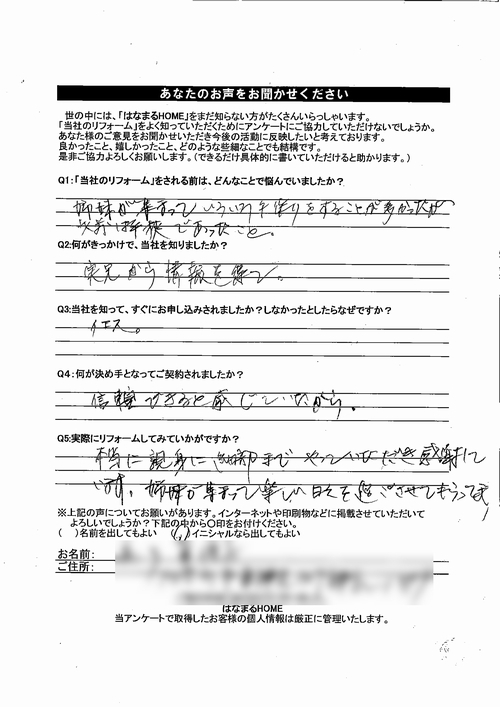 あなたのお声をお聞かせください
世の中には、「はなまるHOME」をまだ知らない方がたくさんいらっしゃいます。
「当社のリフォーム」をよく知っていただくためにアンケートにご協力していただけないでしょうか。
あなた様のご意見をお聞かせいただき今後の活動に反映したいと考えております。
良かったこと、嬉しかったこと、どのような些細なことでも結構です。
是非ご協力よろしくお願いします。(できるだけ具体的に書いていただけると助かります。)
Q1:「当社のリフォーム」をされる前は、どんなことで悩んでいましたか?
姉妹が集まっていろいろ手作りをすることが多かったが
以前は手狭であったこと。
Q2:何がきっかけで、当社を知りましたか?
実兄から情報を得て。
Q3:当社を知って、すぐにお申し込みされましたか?しなかったとしたらなぜですか?
イエス。
Q4:何が決め手となってご契約されましたか?
信頼できると感じていたから。
Q5:実際にリフォームしてみていかがですか?
本当に親身に細部までやっていただき感謝して
います。姉妹が集まって楽しい日々を過ごさせてもらってます
※上記の声についてお願いがあります。インターネットや印刷物などに掲載させていただいて
よろしいでしょうか?下記の中から〇印をお付けください。
( )名前を出してもよい (〇)イニシャルなら出してもよい
お名前:
ご住所:
はなまるHOME
当アンケートで取得したお客様の個人情報は厳正に管理いたします。